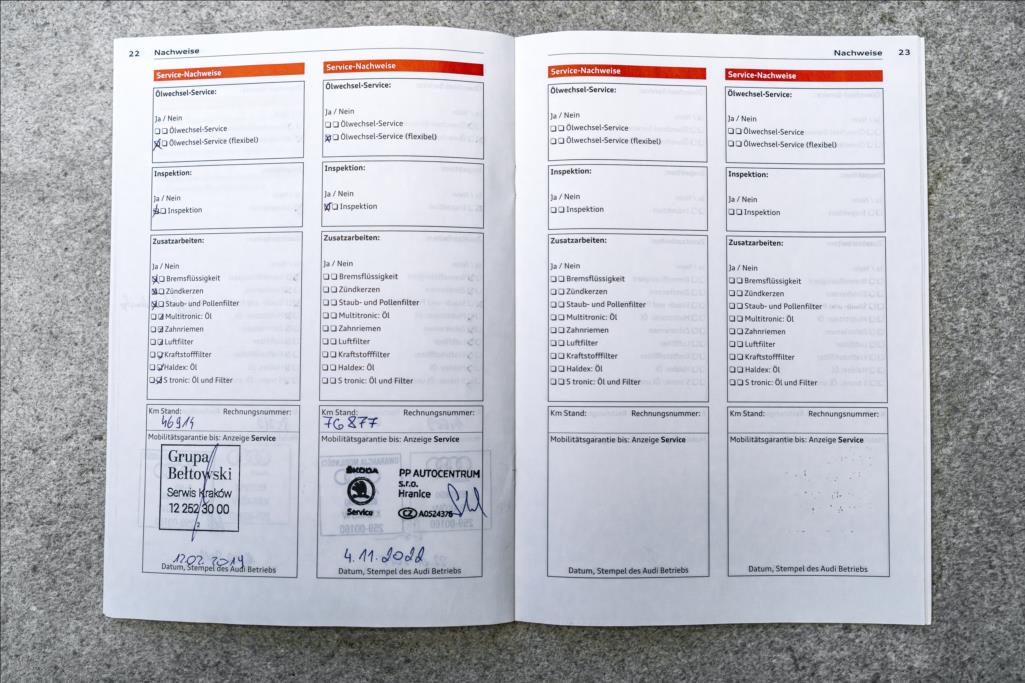 22 Nachweise
Service-Nachweise
Ölwechsel-Service:
Ja / Nein
Ölwechsel-Service
Ölwechsel-Service (flexibel)
Inspektion:
Ja / Nein
Inspektion
Zusatzarbeiten:
Ja / Nein
Bremsflüssigkeit
Zündkerzen
Staub- und Pollenfilter
Multitronic: Öl
Zahnriemen
Luftfilter
Kraftstofffilter
Haldex: Öl
S tronic: Öl und Filter
Km Stand: Rechnungsnummer:
46914
Mobilitätsgarantie bis: Anzeige Service
Grupa
Bełtowski
Serwis Kraków
12 252 30 00
2
12.02.2019
Datum, Stempel des Audi Betriebs
Service-Nachweise
Ölwechsel-Service:
Ja / Nein
Ölwechsel-Service
Ölwechsel-Service (flexibel)
Inspektion:
Ja / Nein
Inspektion
Zusatzarbeiten:
Ja / Nein
Bremsflüssigkeit
Zündkerzen
Staub- und Pollenfilter
Multitronic: Öl
Zahnriemen
Luftfilter
Kraftstofffilter
Haldex: Öl
S tronic: Öl und Filter
Km Stand: Rechnungsnummer:
76877
Mobilitätsgarantie bis: Anzeige Service
ŠKODA
Service
PP AUTOCENTRUM
s.r.o.
Hranice
CZ A0524376
4.11.2022
Datum, Stempel des Audi Betriebs
Nachweise 23
Service-Nachweise
Ölwechsel-Service:
Ja / Nein
Ölwechsel-Service
Ölwechsel-Service (flexibel)
Inspektion:
Ja / Nein
Inspektion
Zusatzarbeiten:
Ja / Nein
Bremsflüssigkeit
Zündkerzen
Staub- und Pollenfilter
Multitronic: Öl
Zahnriemen
Luftfilter
Kraftstofffilter
Haldex: Öl
S tronic: Öl und Filter
Km Stand: Rechnungsnummer:
Mobilitätsgarantie bis: Anzeige Service
Datum, Stempel des Audi Betriebs
Service-Nachweise
Ölwechsel-Service:
Ja / Nein
Ölwechsel-Service
Ölwechsel-Service (flexibel)
Inspektion:
Ja / Nein
Inspektion
Zusatzarbeiten:
Ja / Nein
Bremsflüssigkeit
Zündkerzen
Staub- und Pollenfilter
Multitronic: Öl
Zahnriemen
Luftfilter
Kraftstofffilter
Haldex: Öl
S tronic: Öl und Filter
Km Stand: Rechnungsnummer:
Mobilitätsgarantie bis: Anzeige Service
Datum, Stempel des Audi Betriebs